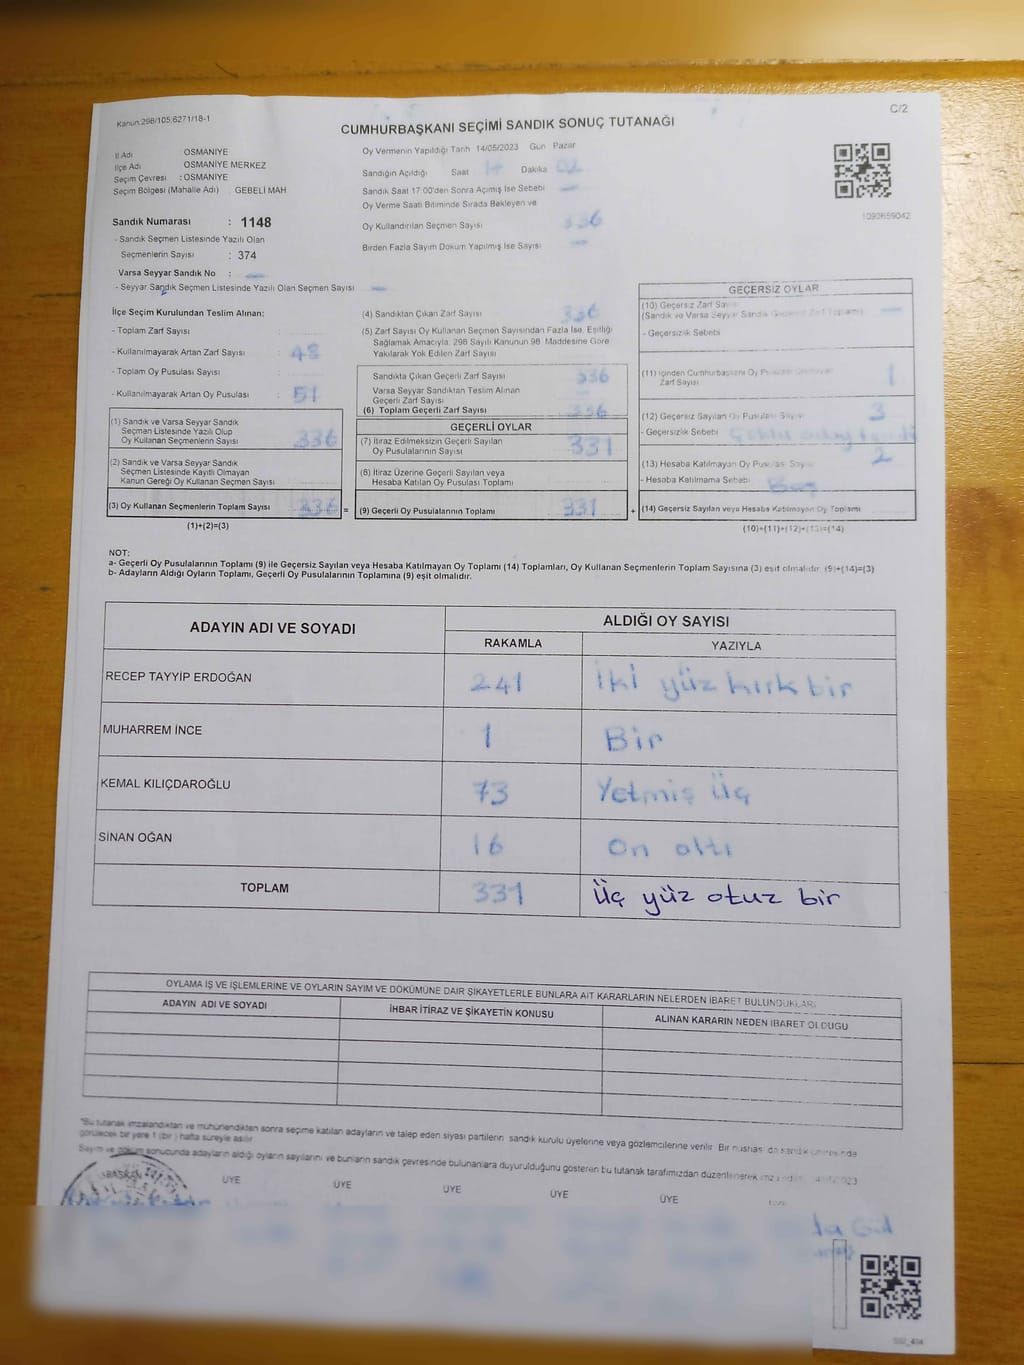 Kanun:298/105;6271/18-1
C/2
CUMHURBAŞKANI SEÇİMİ SANDIK SONUÇ TUTANAĞI
İl Adı OSMANİYE
İlçe Adı OSMANİYE MERKEZ
Seçim Çevresi : OSMANİYE
Seçim Bölgesi (Mahalle Adı) . GEBELİ MAH
Sandık Numarası : 1148
- Sandık Seçmen Listesinde Yazılı Olan
Seçmenlerin Sayısı : 374
Varsa Seyyar Sandık No : —
- Seyyar Sandık Seçmen Listesinde Yazılı Olan Seçmen Sayısı —
Oy Vermenin Yapıldığı Tarih 14/05/2023 Gün Pazar
Sandığın Açıldığı Saat 17 Dakika 02
Sandık Saat 17:00'den Sonra Açılmış İse Sebebi —
Oy Verme Saati Bitiminde Sırada Bekleyen ve
Oy Kullandırılan Seçmen Sayısı 336
Birden Fazla Sayım Döküm Yapılmış İse Sayısı —
1090659042
İlçe Seçim Kurulundan Teslim Alınan:
- Toplam Zarf Sayısı :
- Kullanılmayarak Artan Zarf Sayısı : 48
- Toplam Oy Pusulası Sayısı :
- Kullanılmayarak Artan Oy Pusulası : 51
(1) Sandık ve Varsa Seyyar Sandık
Seçmen Listesinde Yazılı Olup
Oy Kullanan Seçmenlerin Sayısı 336
(2) Sandık ve Varsa Seyyar Sandık
Seçmen Listesinde Kayıtlı Olmayan
Kanun Gereği Oy Kullanan Seçmen Sayısı
(3) Oy Kullanan Seçmenlerin Toplam Sayısı 336 =
(1)+(2)=(3)
(4) Sandıktan Çıkan Zarf Sayısı 336
(5) Zarf Sayısı Oy Kullanan Seçmen Sayısından Fazla İse, Eşitliği
Sağlamak Amacıyla, 298 Sayılı Kanunun 98. Maddesine Göre
Yakılarak Yok Edilen Zarf Sayısı
Sandıkta Çıkan Geçerli Zarf Sayısı 336
Varsa Seyyar Sandıktan Teslim Alınan
Geçerli Zarf Sayısı
(6) Toplam Geçerli Zarf Sayısı 336
GEÇERLİ OYLAR
(7) İtiraz Edilmeksizin Geçerli Sayılan
Oy Pusulasının Sayısı 331
(8) İtiraz Üzerine Geçerli Sayılan veya
Hesaba Katılan Oy Pusulası Toplamı
(9) Geçerli Oy Pusulalarının Toplamı 331 +
GEÇERSİZ OYLAR
(10) Geçersiz Zarf Sayısı
(Sandık ve Varsa Seyyar Sandık Geçersiz Zarf Toplamı) —
- Geçersizlik Sebebi
(11) İçinden Cumhurbaşkanı Oy Pusulası Çıkmayan
Zarf Sayısı 1
(12) Geçersiz Sayılan Oy Pusulası Sayısı 3
- Geçersizlik Sebebi
(13) Hesaba Katılmayan Oy Pusulası Sayısı 2
- Hesaba Katılmama Sebebi Boş
(14) Geçersiz Sayılan veya Hesaba Katılmayan Oy Toplamı
(10)+(11)+(12)+(13)=(14)
NOT:
a- Geçerli Oy Pusulalarının Toplamı (9) ile Geçersiz Sayılan veya Hesaba Katılmayan Oy Toplamı (14) Toplamları, Oy Kullanan Seçmenlerin Toplam Sayısına (3) eşit olmalıdır. (9)+(14)=(3)
b- Adayların Aldığı Oyların Toplamı, Geçerli Oy Pusulalarının Toplamına (9) eşit olmalıdır.
ADAYIN ADI VE SOYADI
ALDIĞI OY SAYISI
RAKAMLA YAZIYLA
RECEP TAYYİP ERDOĞAN 241 İki yüz kırk bir
MUHARREM İNCE 1 Bir
KEMAL KILIÇDAROĞLU 73 Yetmiş üç
SİNAN OĞAN 16 On altı
TOPLAM 331 Üç yüz otuz bir
OYLAMA İŞ VE İŞLEMLERİNE VE OYLARIN SAYIM VE DÖKÜMÜNE DAİR ŞİKAYETLERLE BUNLARA AİT KARARLARIN NELERDEN İBARET BULUNDUKLARI
ADAYIN ADI VE SOYADI İHBAR İTİRAZ VE ŞİKAYETİN KONUSU ALINAN KARARIN NEDEN İBARET OLDUĞU
*Bu tutanak imzalandıktan ve mühürlendikten sonra seçime katılan adayların ve talep eden siyasi partilerin sandık kurulu üyelerine veya gözlemcilerine verilir. Bir nüshası da sandık çevresinde
görülecek bir yere 1 (bir) hafta süreyle asılır.
Sayım ve döküm sonucunda adayların aldığı oyların sayılarını ve bunların sandık çevresinde bulunanlara duyurulduğunu gösteren bu tutanak tarafımızdan düzenlenerek
BAŞKAN ÜYE ÜYE ÜYE ÜYE ÜYE
Gül